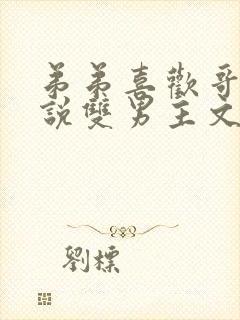 弟弟喜歡哥
說雙男主文
劉標